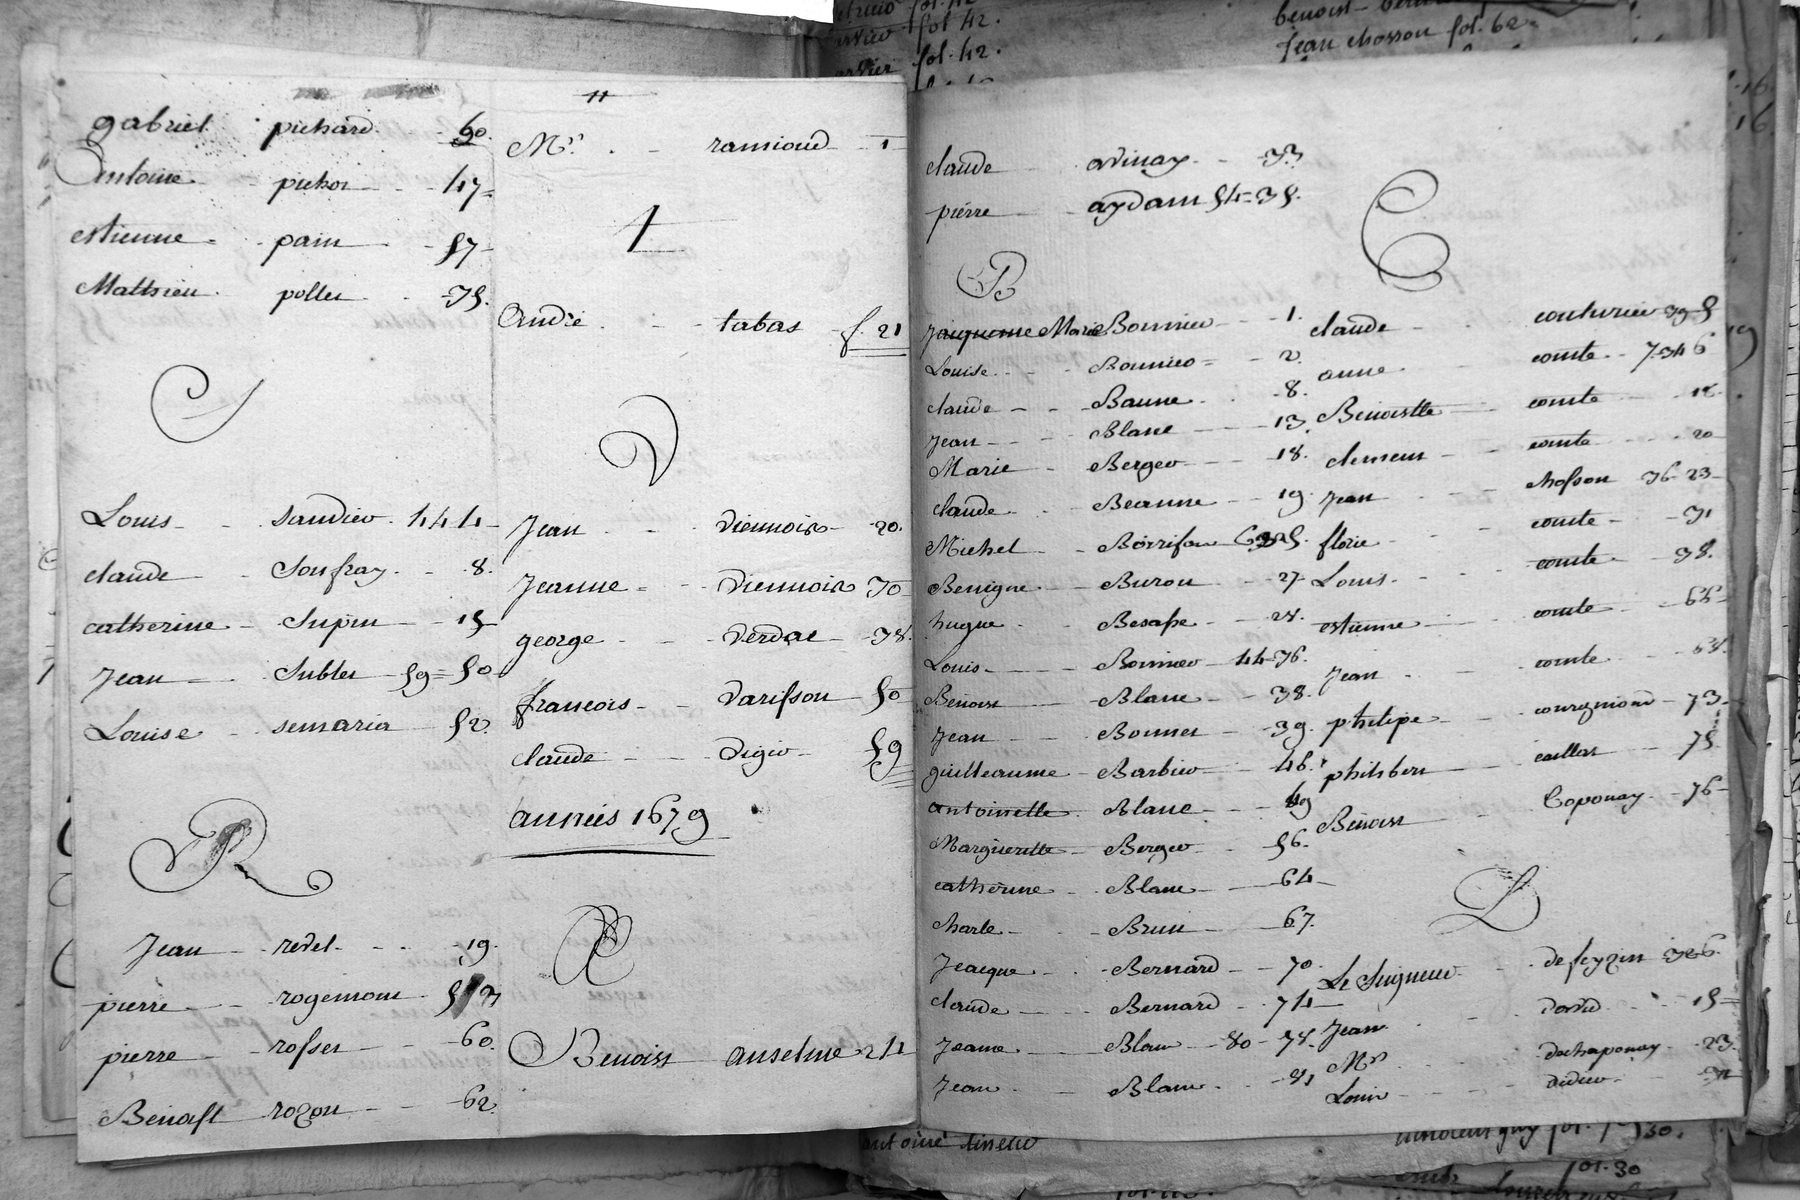 gabriel pichard 60
Antoine pichot 47
estienne pain 57
Matthieu pollet 35
S
Louis sandier 44 4
claude Sonfray 8
catherine Supin 15
Jean Sublet 59 = 50
Louise semaria 52
R
Jean redel 19
pierre rogemont
pierre rosset 60
Benoist rozon 62
Mr ramioud 1
t
André tabas f. 21
V
Jean Viennois 20
Jeanne Viennois 30
george Verdal 38
françois Varisson 50
claude Vigie 59
années 1679
A
Benoist anselme 24
claude avinay 33
pierre aydam 54 = 35
B
Jaiqueme Marie Bonnier 1
Louise Bonnier 2
claude Baune 8
Jean Blanc 13
Marie Berger 18
claude Beaune 19
Michel
Benigne Buron 27
hugue Besasse 28
Louis Bonnier 44 = 36
Benoist Blanc 38
Jean Bonnet 39
guilleaume Barbier 46
antoinette Blanc 49
Marguerette Berger 56
catherine Blanc 64
charle Brun 67
Jeacque Bernard 70
claude Bernard 74
Jeanne Blanc 80 - 78
Jean Blanc
C
claude couturier 39 5
anne comte 7 34 6
Benoistte comte 18
clement comte 20
Jean chosson 36 - 23
florie comte 31
Louis comte 38
estienne comte 66
Jean comte 68
philipe courgniond 73
philibert caillat 75
Benoist Coponay 76
D
Le Seigneur de feyzin
Jean david 15
Mr dechaponay 23
Louis didier
fol 42.
fol. 42.
Jean chosson fol. 62
antoine tisseur
fol. 30